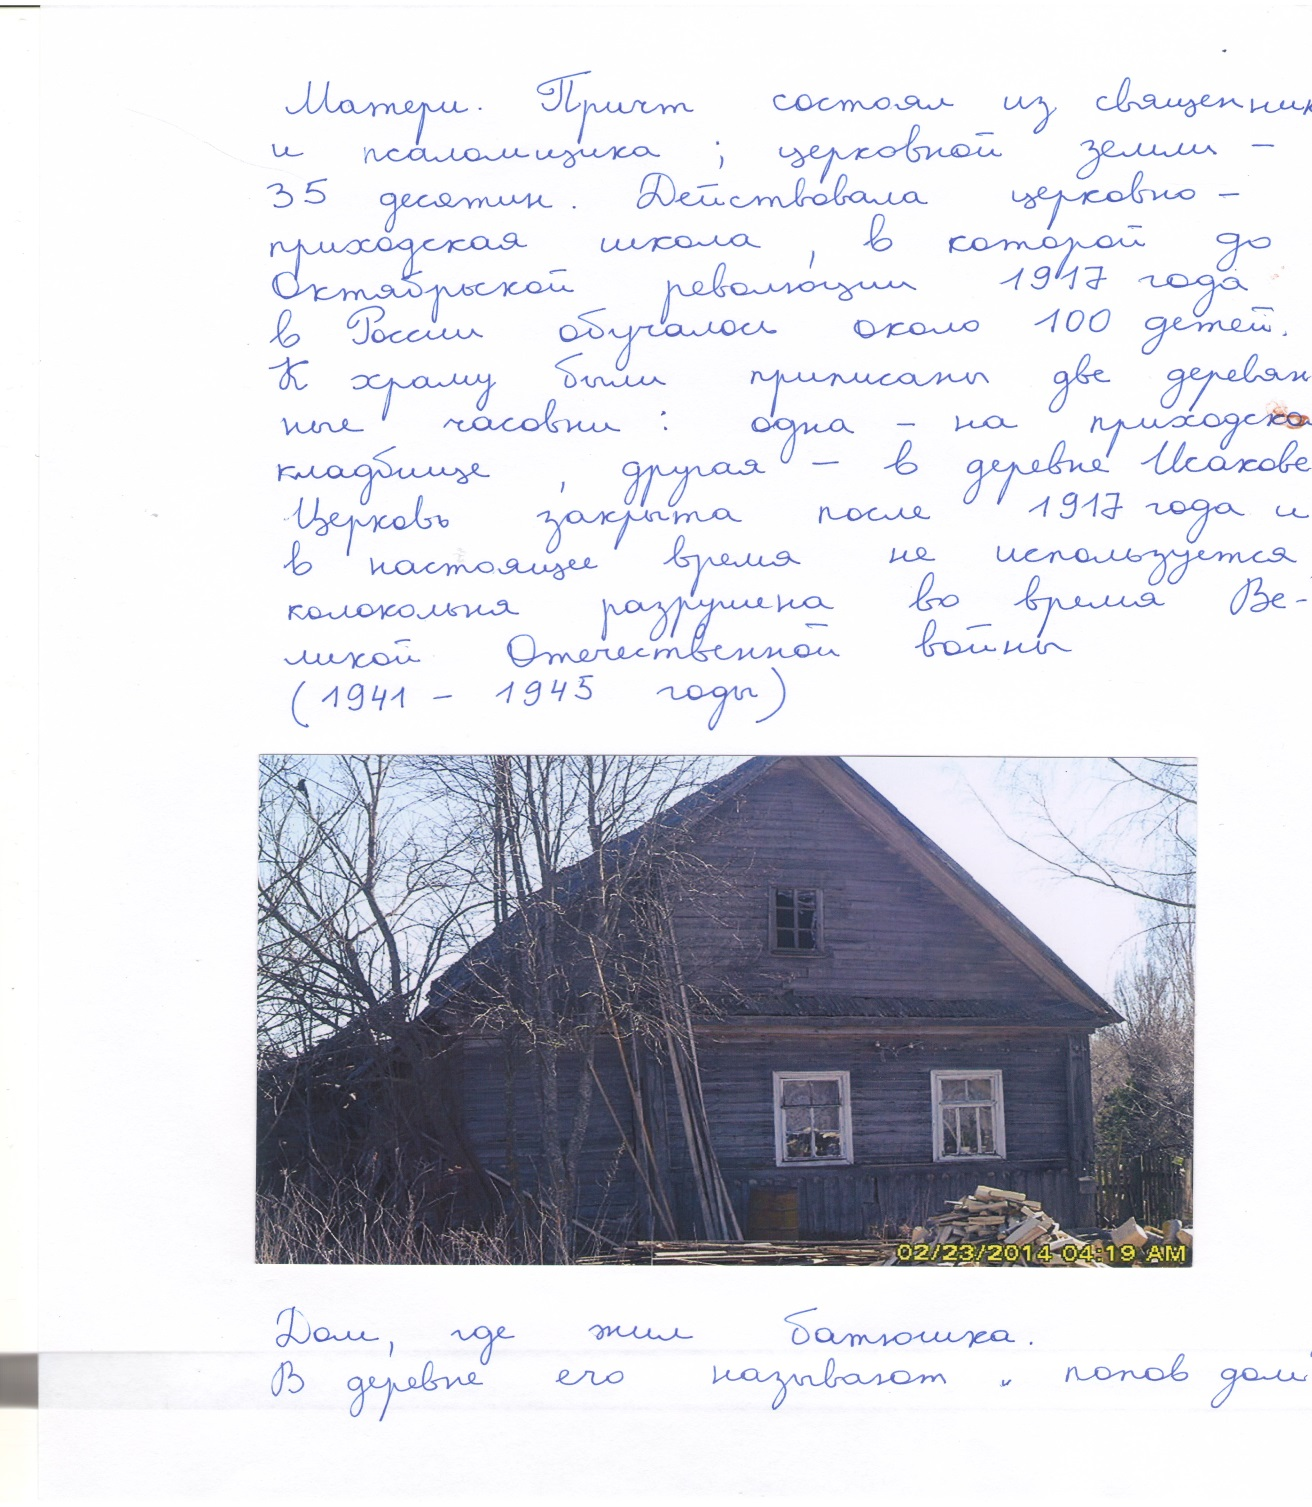 Матери. Причт состоял из священник
и псаломщика ; церковной земли –
35 десятин. Действовала церковно –
приходская школа , в которой до
Октябрьской революции 1917 года
в России обучалось около 100 детей.
К храму были приписаны две деревян
ные часовни : одна – на приходско
кладбище , другая – в деревне Исакове
Церковь закрыта после 1917 года и
в настоящее время не используется
колокольня разрушена во время Ве-
ликой Отечественной войны
(1941 – 1945 годы)
02/23/2014 04:19 AM
Дом, где жил батюшка.
В деревне его называют „ попов дом"